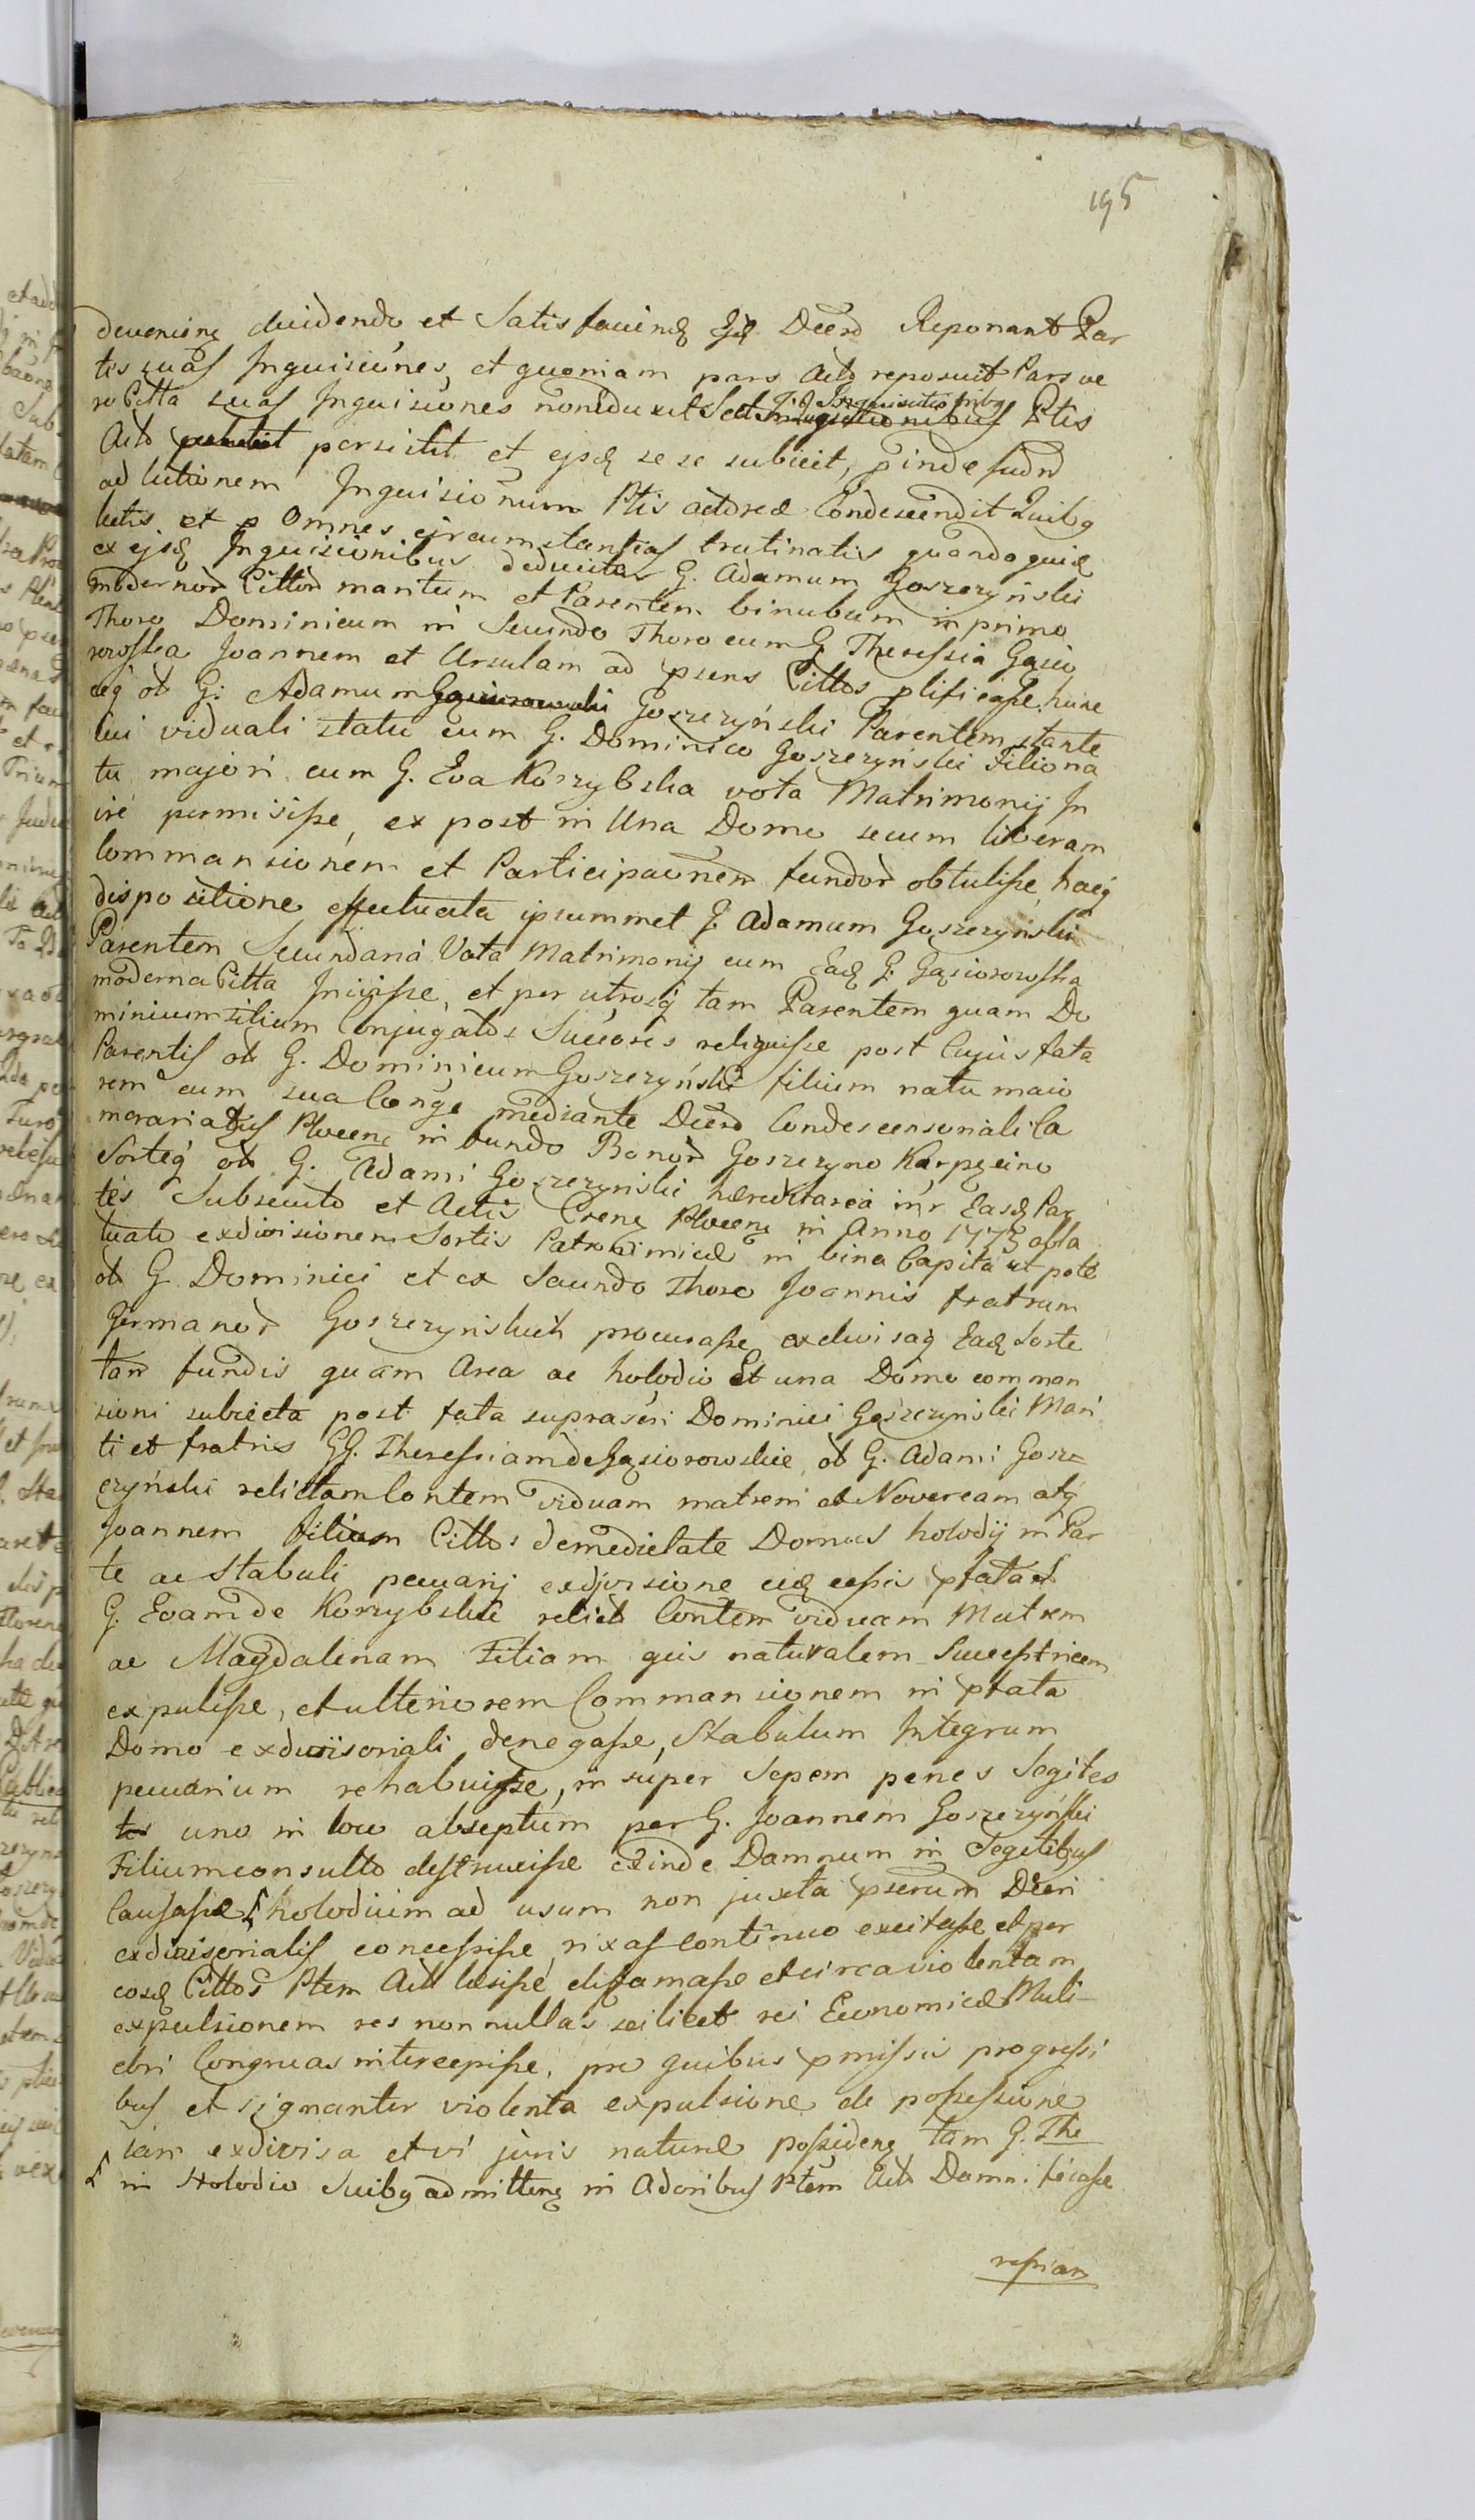 195
devenien dividendo et Satisfaciend Ejd Decro Reponant Par
tes suas Inquisiones, et quoniam pars Acto reposuit Pars ve
ro Citta suas Inquisiones non eduxit Sed Inquisitionibq Ptis
Acto persistit et ejsd se se subiicit, pinde Judm
ad lectionem Inquisionum Ptis actorea Condescendit Quibq
lectis et p Omnes circumstantias trutinatis quandoquid
ex ejsd Inquisionibus deducitur G. Adamum Goszczynski
modernor Cittor maritum et Parentem binubum in primo
Thoro Dominicum in Secundo Thoro cum G. Theressia Gąsio
rowska Joannem et Ursulam ad psens Cittos plificasse, hunc
cq ol G: Adamum Goszczyński Parentem stante
sui viduali statu cum G. Dominico Goszczyński Filio na
tu majori cum G. Eva Korzybska vota Matrimonij In
ire permisisse, ex post in Una Domo secum liberam
Commansionem et Participaonem fundor obtulisse, hacq
dispositione effectuata ipsummet G. Adamum Goszczynski
Parentem Secundana Vota Matrimonij cum Ead G. Gąsiorowska
moderna Citta Iniisse, et per utrosq tam Parentem quam Do
minicum filium Conjugatos Succores reliquisse post Cujus fata
Parentis ol G. Dominicum Goszczyński filium natu maio
rem cum sua Conge mediante Decro Condescensoriali Ca
merariatus Plocen in fundo Bonor Goszczyno Karpęcino
Sorteq ol G. Adami Goszczynski hæreditarea intr Easd Par
tes Subsecuto et Actis Cren Plocen in Anno 1773 obla
tuato exdivisionem Sortis Patronimicæ in bina Capita ut pote
ol G. Dominici et ex Secundo Thoro Joannis fratrum
Germanor Goszczynskich procurasse exdivisaq Ead Sorte
tam fundis quam Area ac holodio Et una Domo comman
sioni subiecta post fata suprascri Dominici Goszczynski Mari
ti et fratris GG. Theressiam de Gąsiorowskie ol G. Adami Gosz=
czyński relictam Contem viduam matrem et Novercam atq
Joannem Filium Cittos de medietate Domus holodij in Par
te ac Stabuli pecuarij exdivisione eid cessis pfatad
G. Evam de Korzybskie relict Contem viduam Matrem
ac Magdalenam Filiam ejus naturalem Succestricem
expulisse, et ulteriorem Commansionem in pfata
Domo exdivisoriali denegasse, Stabulum Integrum
pecuarium rehabuisse, in super Sepem penes Segites
uno in loco abseptum per G. Joannem Goszczyński
Filium consulto destruxisse exinde Damnum in Segetibus
Causasse, holodium ad usum non juxta pscrum Decri
exdivisorialis concessisse, rixas continuo excitasse et per
eosd Cittos Ptem Act læsisse diffamasse et circa violentam
expulsionem res nonnullas scilicet rei Economicæ Muli-
ebri Congruas intercepisse, pro quibus pmissis progressi
bus et signanter violenta expulsione de possessione
iam exdivisa et vi juris naturæ possiden tam G. The
in Holodio Suibq admitten in Adoribus Ptem Act Damni ficasse
ressiam